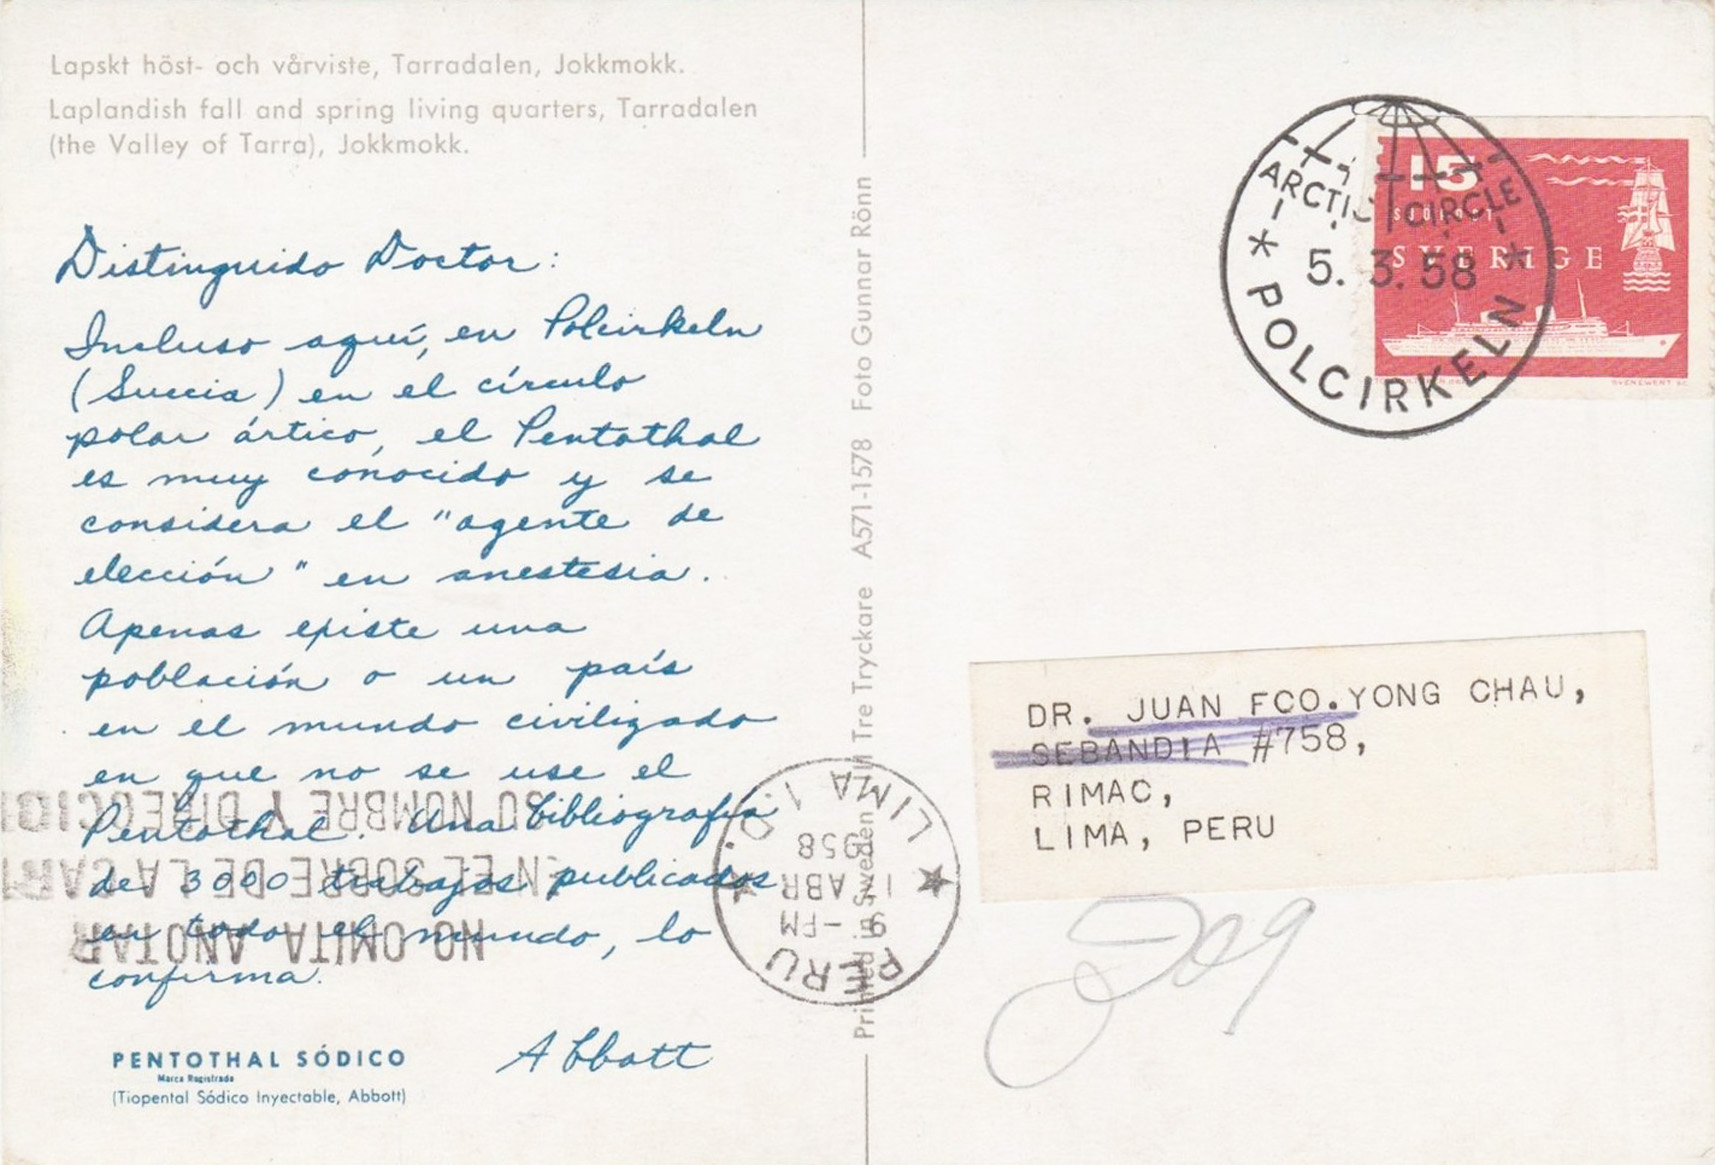 Lapskt höst- och vårviste, Tarradalen, Jokkmokk.
Laplandish fall and spring living quarters, Tarradalen
(the Valley of Tarra), Jokkmokk.
Distinguido Doctor:
Incluso aquí, en Polcirkeln
(Suecia) en el círculo
polar ártico, el Pentothal
es muy conocido y se
considera el "agente de
elección" en anestesia.
Apenas existe una
población o un país
en el mundo civilizado
en que no se use el
Pentothal. Una bibliografía
de 3000 trabajos publicados
en todo el mundo, lo
confirma.
Abbott
PENTOTHAL SÓDICO
Marca Registrada
(Tiopental Sódico Inyectable, Abbott)
NO OMITA ANOTAR
EN EL SOBRE DE LA CART
SU NOMBRE Y DIRECCION
PERU
9 - PM
ABR
1958
LIMA 1.
Printed in Sweden Tre Tryckare A571-1578 Foto Gunnar Rönn
ARCTIC CIRCLE
5. 3. 58
* POLCIRKELN *
15
SJÖPOST
SVERIGE
DR. JUAN FCO. YONG CHAU,
SEBANDIA #758,
RIMAC,
LIMA, PERU